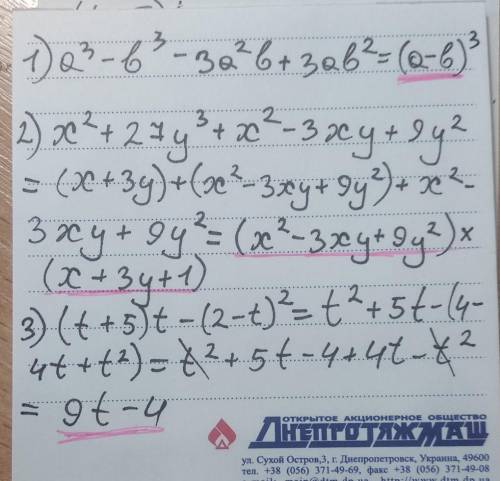 1) a³ - b³ - 3a²b + 3ab² = (a-b)³
2) x² + 27y³ + x² - 3xy + 9y²
= (x + 3y) + (x² - 3xy + 9y²) + x² -
3xy + 9y² = (x² - 3xy + 9y²) ×
(x + 3y + 1)
3) (t + 5)t - (2 - t)² = t² + 5t - (4 -
4t + t²) = t² + 5t - 4 + 4t - t²
= 9t - 4
ОТКРЫТОЕ АКЦИОНЕРНОЕ ОБЩЕСТВО
ДНЕПРОТЯЖМАШ
ул. Сухой Остров,3, г. Днепропетровск, Украина, 49600
тел. +38 (056) 371-49-69, факс +38 (056) 371-49-08